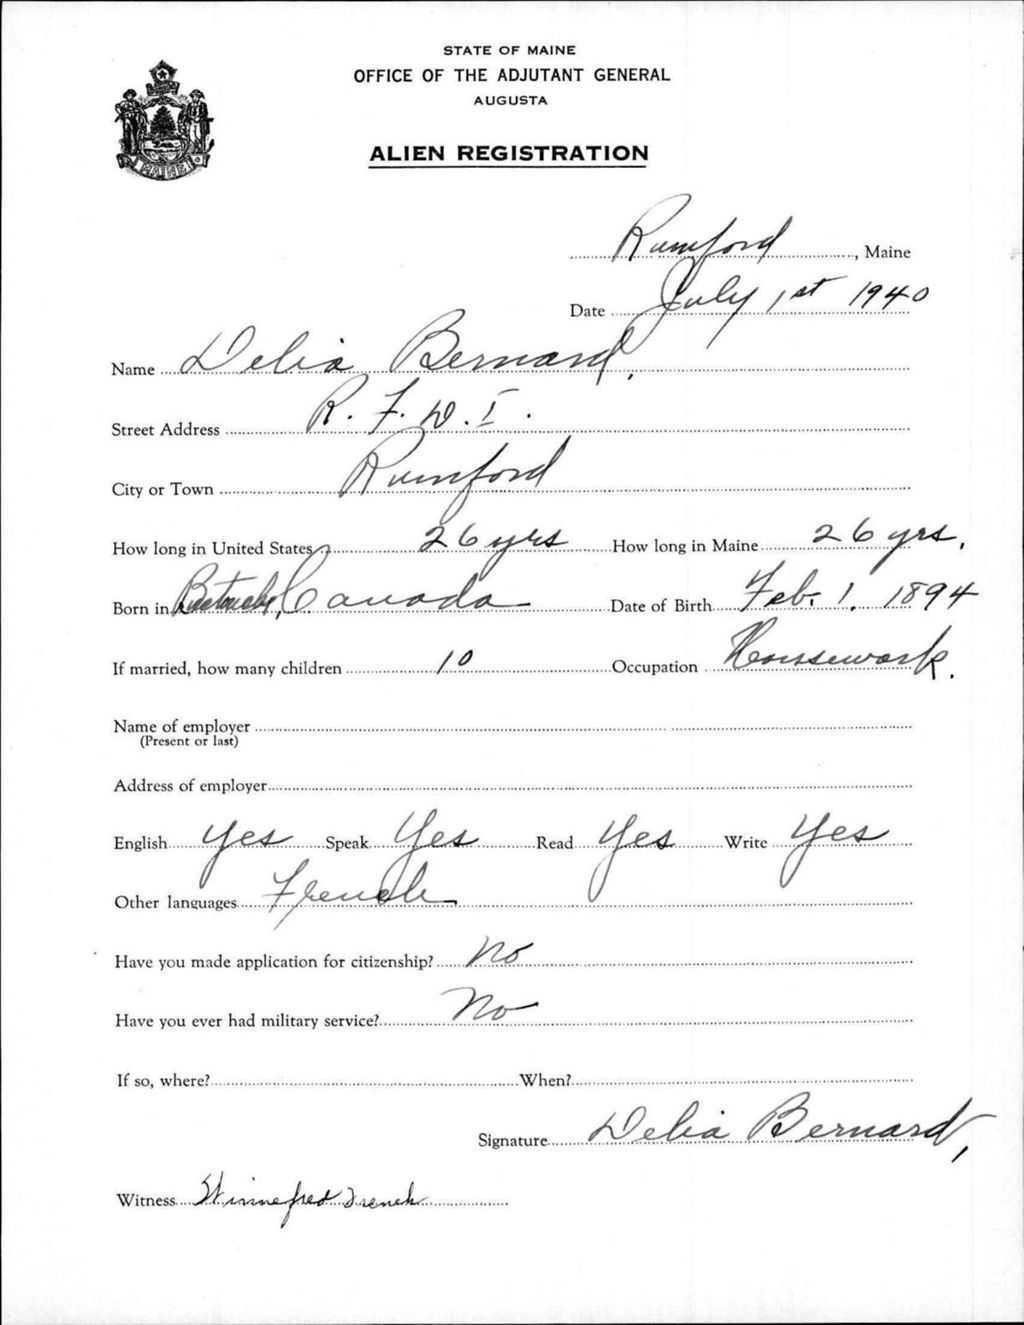 STATE OF MAINE
OFFICE OF THE ADJUTANT GENERAL
AUGUSTA
ALIEN REGISTRATION
MAINE
Rumford, Maine
Date July 1st 1940
Name Delia Bernard,
Street Address R. F. D. I.
City or Town Rumford
How long in United States 26 yrs How long in Maine 26 yrs.
Born in Canada Date of Birth Feb. 1. 1894
If married, how many children 10 Occupation Housework.
Name of employer
(Present or last)
Address of employer
English Yes Speak Yes Read Yes Write Yes
Other languages French
Have you made application for citizenship? No
Have you ever had military service? No
If so, where? When?
Signature Delia Bernard,
Witness Winnefred French